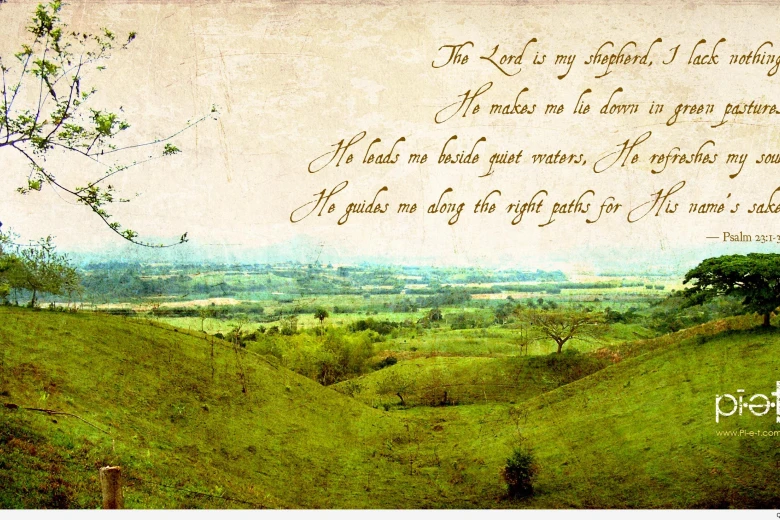 The Lord is my shepherd, I lack nothing
He makes me lie down in green pasture
He leads me beside quiet waters, He refreshes my sou
He guides me along the right paths for His name's sake
— Psalm 23:1-3
pi·e·t
www.Pi-e-t.com